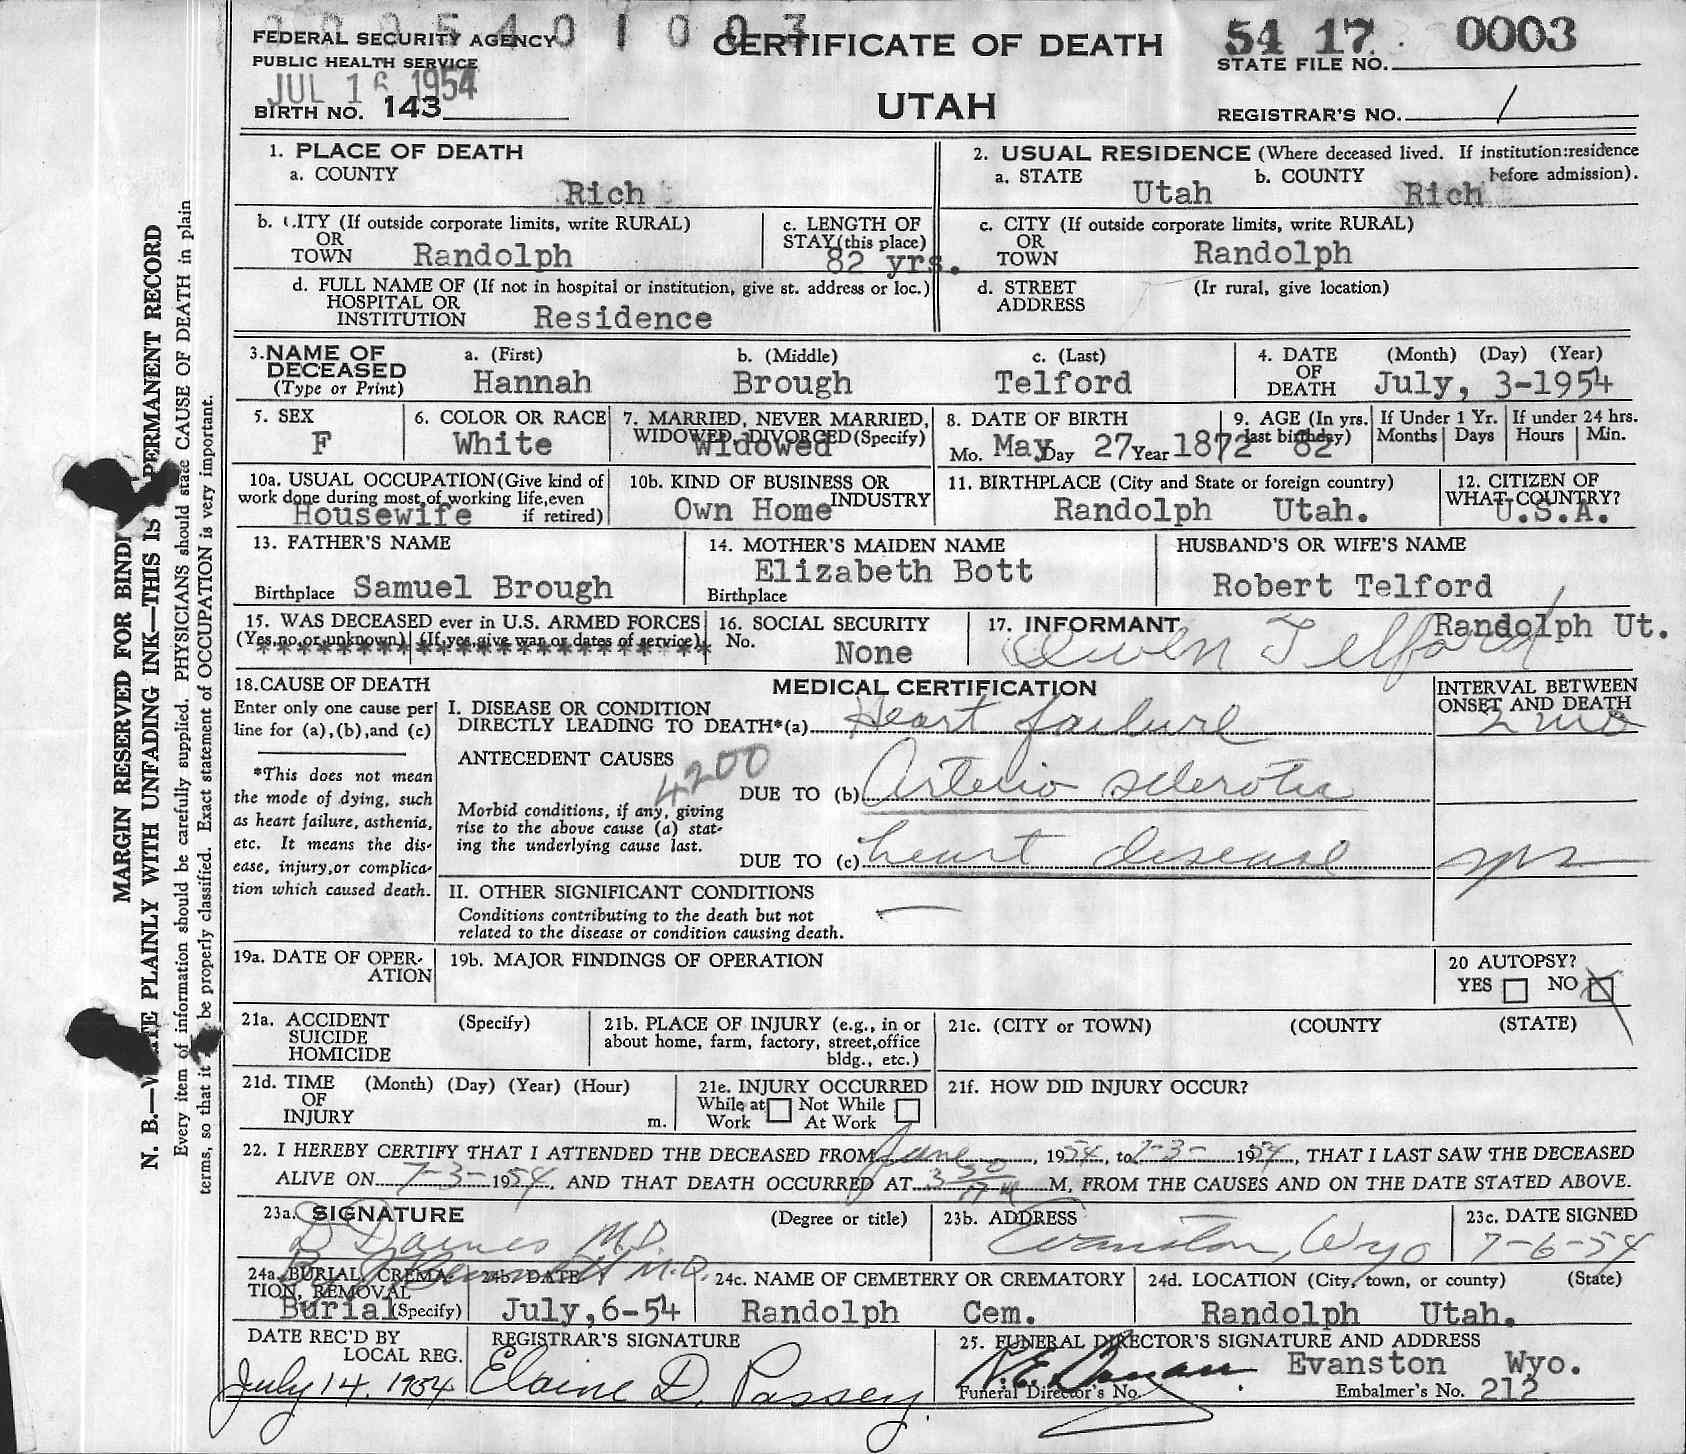 2005401003
FEDERAL SECURITY AGENCY
PUBLIC HEALTH SERVICE
JUL 16 1954
BIRTH NO. 143
CERTIFICATE OF DEATH
UTAH
54 17 0003
STATE FILE NO.
REGISTRAR'S NO. 1
MARGIN RESERVED FOR
N. B.— PLAINLY WITH UNFADING INK—THIS IS PERMANENT RECORD
Every item of information should be carefully supplied. PHYSICIANS should state CAUSE OF DEATH in plain
terms, so that it be properly classified. Exact statement of OCCUPATION is very important.
1. PLACE OF DEATH
a. COUNTY
Rich
2. USUAL RESIDENCE (Where deceased lived. If institution:residence
before admission).
a. STATE Utah b. COUNTY Rich
b. CITY (If outside corporate limits, write RURAL)
OR
TOWN Randolph
c. LENGTH OF
STAY (this place)
82 yrs.
c. CITY (If outside corporate limits, write RURAL)
OR
TOWN Randolph
d. FULL NAME OF (If not in hospital or institution, give st. address or loc.)
HOSPITAL OR
INSTITUTION Residence
d. STREET (Ir rural, give location)
ADDRESS
3. NAME OF
DECEASED
(Type or Print)
a. (First) b. (Middle) c. (Last)
Hannah Brough Telford
4. DATE (Month) (Day) (Year)
OF
DEATH July, 3-1954
5. SEX
F
6. COLOR OR RACE
White
7. MARRIED, NEVER MARRIED,
WIDOWED, DIVORCED (Specify)
Widowed
8. DATE OF BIRTH
Mo. May Day 27 Year 1872
9. AGE (In yrs. last birthday)
82
If Under 1 Yr.
Months Days
If under 24 hrs.
Hours Min.
10a. USUAL OCCUPATION (Give kind of
work done during most of working life, even
if retired)
Housewife
10b. KIND OF BUSINESS OR
INDUSTRY
Own Home
11. BIRTHPLACE (City and State or foreign country)
Randolph Utah.
12. CITIZEN OF
WHAT COUNTRY?
U.S.A.
13. FATHER'S NAME
Birthplace Samuel Brough
14. MOTHER'S MAIDEN NAME
Elizabeth Bott
Birthplace
HUSBAND'S OR WIFE'S NAME
Robert Telford
15. WAS DECEASED ever in U.S. ARMED FORCES
(Yes, no, or unknown) (If yes, give war or dates of service)
16. SOCIAL SECURITY
No. None
17. INFORMANT
Owen Telford
Randolph Ut.
18. CAUSE OF DEATH
Enter only one cause per
line for (a), (b), and (c)
*This does not mean
the mode of dying, such
as heart failure, asthenia,
etc. It means the dis-
ease, injury, or complica-
tion which caused death.
MEDICAL CERTIFICATION
INTERVAL BETWEEN
ONSET AND DEATH
I. DISEASE OR CONDITION
DIRECTLY LEADING TO DEATH*(a) Heart failure
2 mo
ANTECEDENT CAUSES
4200
Morbid conditions, if any, giving
rise to the above cause (a) stat-
ing the underlying cause last.
DUE TO (b) Arterio sclerotic
DUE TO (c) heart disease
yrs
II. OTHER SIGNIFICANT CONDITIONS
Conditions contributing to the death but not
related to the disease or condition causing death.
19a. DATE OF OPER-
ATION
19b. MAJOR FINDINGS OF OPERATION
20 AUTOPSY?
YES NO X
21a. ACCIDENT (Specify)
SUICIDE
HOMICIDE
21b. PLACE OF INJURY (e.g., in or
about home, farm, factory, street, office
bldg., etc.)
21c. (CITY or TOWN) (COUNTY (STATE)
21d. TIME (Month) (Day) (Year) (Hour)
OF
INJURY m.
21e. INJURY OCCURRED
While at Not While
Work At Work
21f. HOW DID INJURY OCCUR?
22. I HEREBY CERTIFY THAT I ATTENDED THE DECEASED FROM June, 1954, to 7-3- 1954, THAT I LAST SAW THE DECEASED
ALIVE ON 7-3- 1954, AND THAT DEATH OCCURRED AT 3 30 M, FROM THE CAUSES AND ON THE DATE STATED ABOVE.
23a. SIGNATURE (Degree or title)
Daines M.D.
By Bennett M.D.
23b. ADDRESS
Evanston, Wyo
23c. DATE SIGNED
7-6-54
24a. BURIAL, CREMA-
TION, REMOVAL
Burial (Specify)
24b. DATE
July, 6-54
24c. NAME OF CEMETERY OR CREMATORY
Randolph Cem.
24d. LOCATION (City, town, or county) (State)
Randolph Utah.
DATE REC'D BY
LOCAL REG.
July 14, 1954
REGISTRAR'S SIGNATURE
Elaine D. Passey
25. FUNERAL DIRECTOR'S SIGNATURE AND ADDRESS
Evanston Wyo.
Funeral Director's No. Embalmer's No. 212